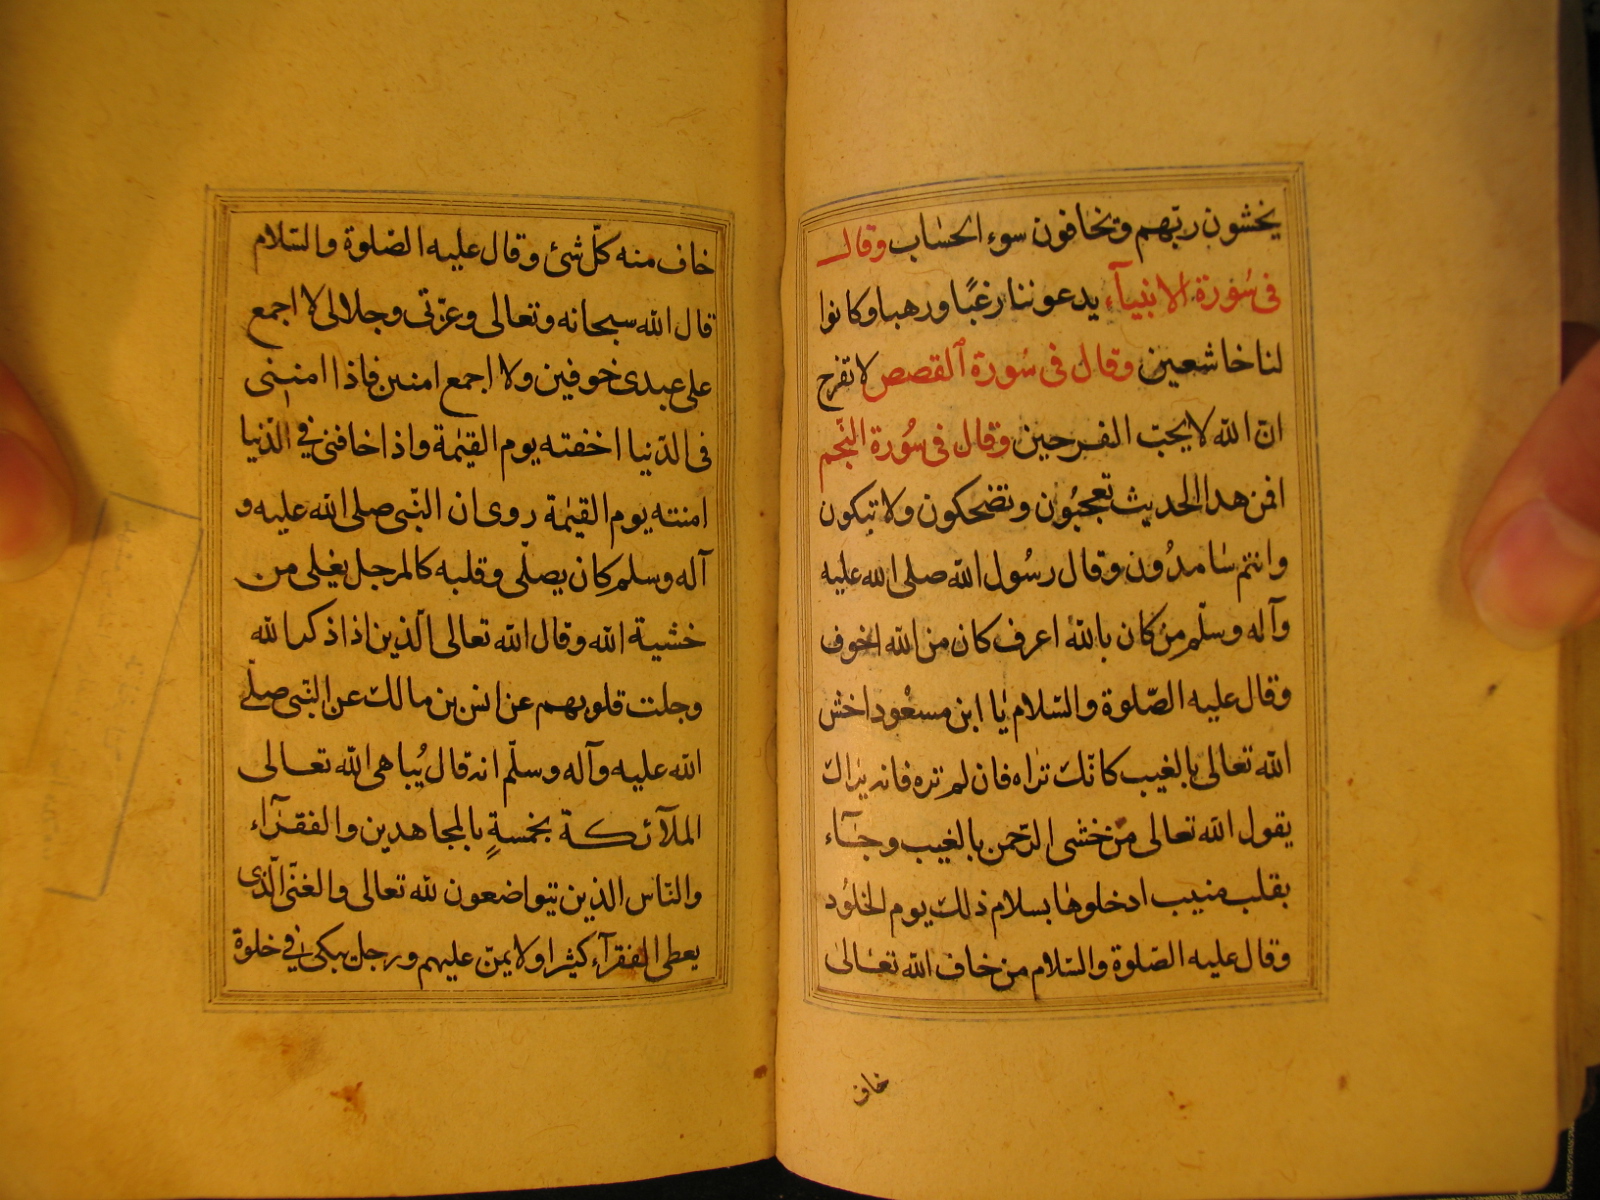 يخشون ربّهم ويخافون سوء الحساب وقال
فى سورة الانبيآء يدعوننا رغبًا ورهبا وكانوا
لنا خاشعين وقال فى سورة القصص لا تفرح
انّ الله لا يحبّ الفرحين وقال فى سُورة النّجم
افمن هذا الحديث تعجبُون وتضحكون ولا تبكون
وانتم سامدُون وقال رسُول الله صلى الله عليه
وآله وسلّم من كان بالله اعرف كان من الله اخوف
وقال عليه الصّلوة والسّلام يا ابن مسعْود اخش
الله تعالى بالغيب كانّك تراه فان لم تره فانه يراك
يقول الله تعالى من خشى الرّحمن بالغيب وجآء
بقلب منيب ادخلوها بسلام ذلك يوم الخلُود
وقال عليه الصّلوة والسّلام من خاف الله تعالى
خاف
خاف منه كلّ شئ وقال عليه الصّلوة والسّلام
قال الله سبحانه وتعالى وعزّتى وجلالى لا اجمع
على عبدى خوفين ولا اجمع امنين فاذا امننى
فى الدّنيا اخفته يوم القيٰمة واذا خافنى في الدّنيا
امنته يوم القيٰمة روى ان النّبى صلى الله عليه و
آله وسلم كان يصلّى وقلبه كالمرجل يغلى من
خشية الله وقال الله تعالى الّذين اذا ذكر الله
وجلت قلوبهم عن انس بن مالك عن النّبى صلّى
الله عليه وآله وسلّم انه قال يُباهى الله تعالى
الملآئكة بخمسةٍ بالمجاهدين والفقرآء
والنّاس الذين يتواضعون لله تعالى والغنّى الّذى
يعطى الفقرآء كثيرا ولا يمنّ عليهم ورجل يبكى في خلوة